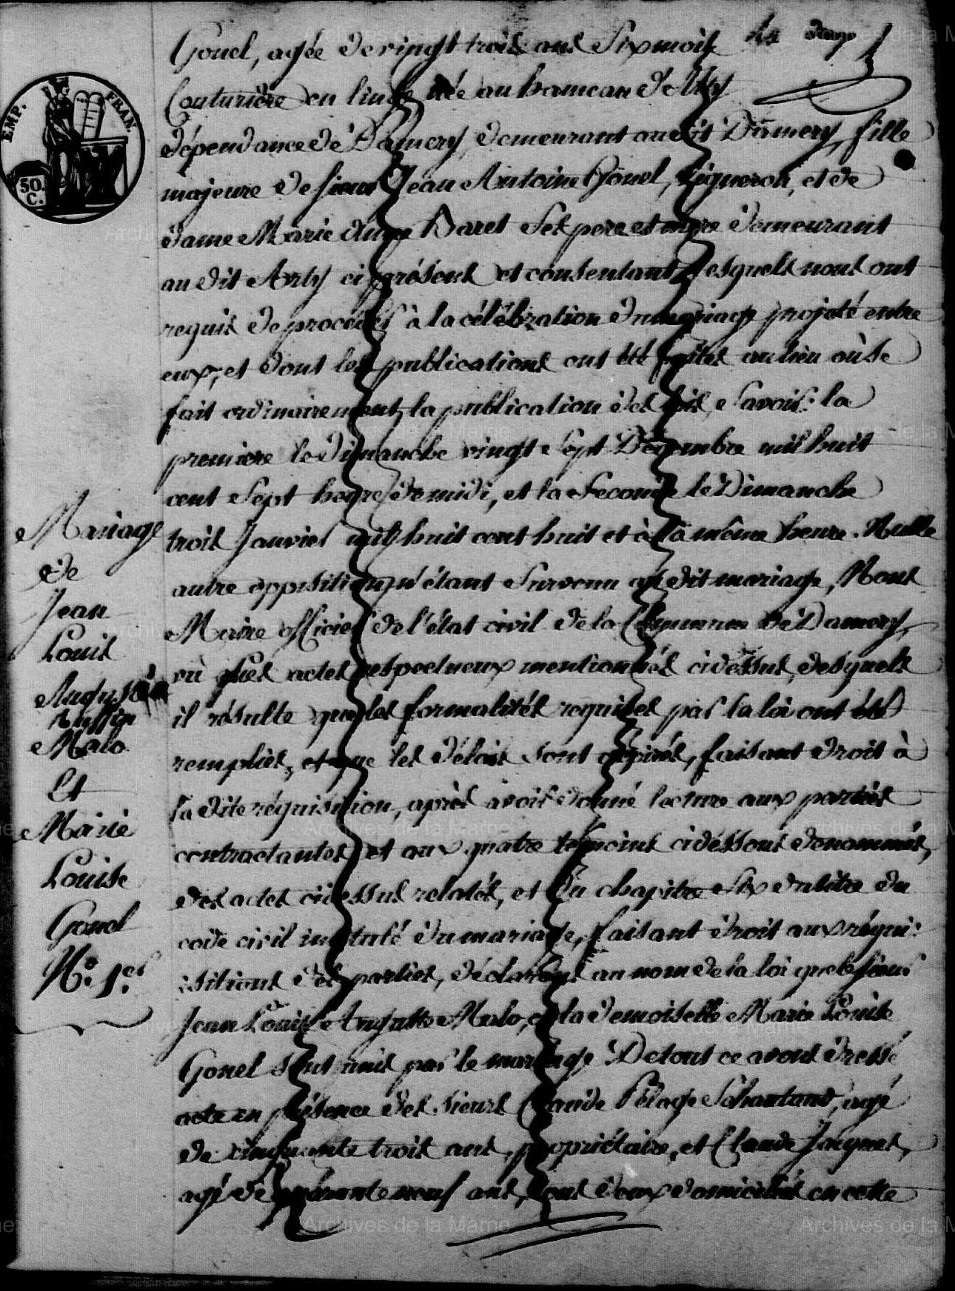 EMP. FRAN.
50.
C.
Gonel, agée de vingt trois ans six mois
Couturière en linge née au hameau d'Arty
dépendance de Damery, demeurant au dit Damery, fille
majeure de sieur Jean Antoine Gonel, Vigneron, et de
dame Marie Anne Baret ses pere et mere demeurant
au dit Arty ci présent et consentant, lesquels nous ont
requis de procéder à la célébration du mariage projeté entre
eux, et dont les publications ont été faites au lieu où se
fait ordinairement la publication des lois, savoir: la
premiere le dimanche vingt sept Decembre mil huit
cent sept heure de midi, et la seconde le Dimanche
trois Janvier mil huit cent huit et à la même heure. Nulle
autre opposition n'étant survenu au dit mariage, Nous
Maire officier de l'état civil de la Commune de Damery,
vû les actes respectueux mentionnés cidessus, desquels
il résulte que les formalités requises par la loi ont été
remplies, et que les délais sont expirés, faisant droit à
la dite réquisition, après avoir donné lecture aux parties
contractantes, et aux quatre témoins cidessous denommés,
des actes cidessus relatés, et du chapitre six du titre du
code civil intitulé du mariage, faisant droit aux réqui:
:sitions des parties, déclarons au nom de la loi que le sieur
Jean Louis Auguste Malo, et la demoiselle Marie Louise
Gonel sont unis par le mariage. De tout ce avons dressé
acte en présence des sieurs Claude Pélage agé
de cinquante trois ans, propriétaire, et Claude Jacquet,
agé de quarante neuf ans, tous deux domiciliés en cette
Mariage
de
Jean
Louis
Auguste
Ruffin
Malo
Et
Marie
Louise
Gonel
N.° 1.er
Archives de la Marne